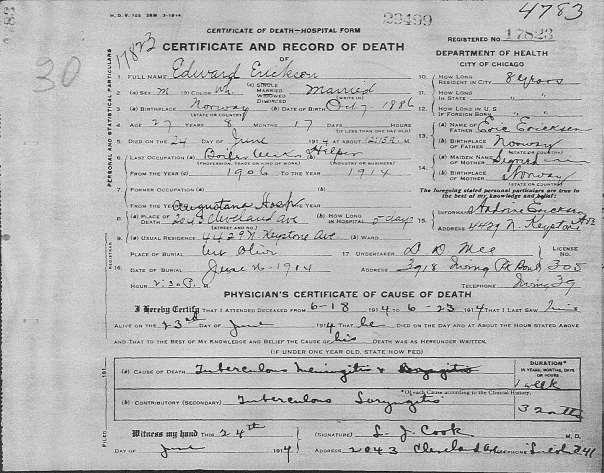 H.D.V. 105 25M 3-1914
4783
CERTIFICATE OF DEATH—HOSPITAL FORM
23499
REGISTERED NO. 17823
17823
CERTIFICATE AND RECORD OF DEATH
OF
DEPARTMENT OF HEALTH
CITY OF CHICAGO
30
PERSONAL AND STATISTICAL PARTICULARS
1. FULL NAME Edward Erickson
10. HOW LONG RESIDENT IN CITY 8 years
2. (a) SEX M (b) COLOR W. (c) SINGLE MARRIED WIDOWED DIVORCED Married (WRITE IN)
11. HOW LONG IN STATE " "
3. (a) BIRTHPLACE Norway (STATE OR COUNTRY) (b) DATE OF BIRTH Oct 7 1886
12. HOW LONG IN U.S. IF FOREIGN BORN " "
4. AGE 27 YEARS 8 MONTHS 17 DAYS HOURS (IF LESS THAN ONE DAY OLD)
13. (a) NAME OF FATHER Eric Ericksen
5. DIED ON THE 24 DAY OF June 1914 AT ABOUT M.
(b) BIRTHPLACE OF FATHER Norway (STATE OR COUNTRY)
6. LAST OCCUPATION (a) Boiler (b) Helper
(PROFESSION, TRADE OR KIND OF WORK) (INDUSTRY OR BUSINESS)
14. (a) MAIDEN NAME OF MOTHER
FROM THE YEAR (c) 1906 TO THE YEAR 1914
(b) BIRTHPLACE OF MOTHER Norway (STATE OR COUNTRY)
7. FORMER OCCUPATION (a) (b)
The foregoing stated personal particulars are true to the best of my knowledge and belief
FROM THE YEAR (c) TO THE YEAR
Augustana Hosp
15. INFORMANT Erickson
8. (a) PLACE OF DEATH 2043 Cleveland Ave (STREET AND NO.) (b) HOW LONG IN HOSPITAL 5 days
ADDRESS 4429 N. Keystone Ave
9. (a) USUAL RESIDENCE 4429 N Keystone Ave (b) WARD
PLACE OF BURIAL Mt Olive
17 UNDERTAKER D D Mee LICENSE NO.
16. DATE OF BURIAL June 26-1914
ADDRESS 3918 Irving Pk Boul 305
HOUR 2:30 P. M.
TELEPHONE Irving 39
PHYSICIAN'S CERTIFICATE OF CAUSE OF DEATH
I Hereby Certify THAT I ATTENDED DECEASED FROM 6-18 1914 TO 6-23 1914 THAT I LAST SAW him
ALIVE ON THE 23rd DAY OF June 1914 THAT he DIED ON THE DAY AND AT ABOUT THE HOUR STATED ABOVE
AND THAT TO THE BEST OF MY KNOWLEDGE AND BELIEF THE CAUSE OF his DEATH WAS AS HEREUNDER WRITTEN.
(IF UNDER ONE YEAR OLD, STATE HOW FED)
DURATION*
IN YEARS, MONTHS, DAYS OR HOURS
(a) CAUSE OF DEATH Tuberculous Meningitis
1 week
*Of each Cause according to the Clinical History.
(b) CONTRIBUTORY (SECONDARY) Tuberculous Laryngitis
FILED 191
Witness my hand THIS 24th
(SIGNATURE) L. J. Cook M.D.
DAY OF June 1914
ADDRESS 2043 Cleveland Ave TELEPHONE Lincoln